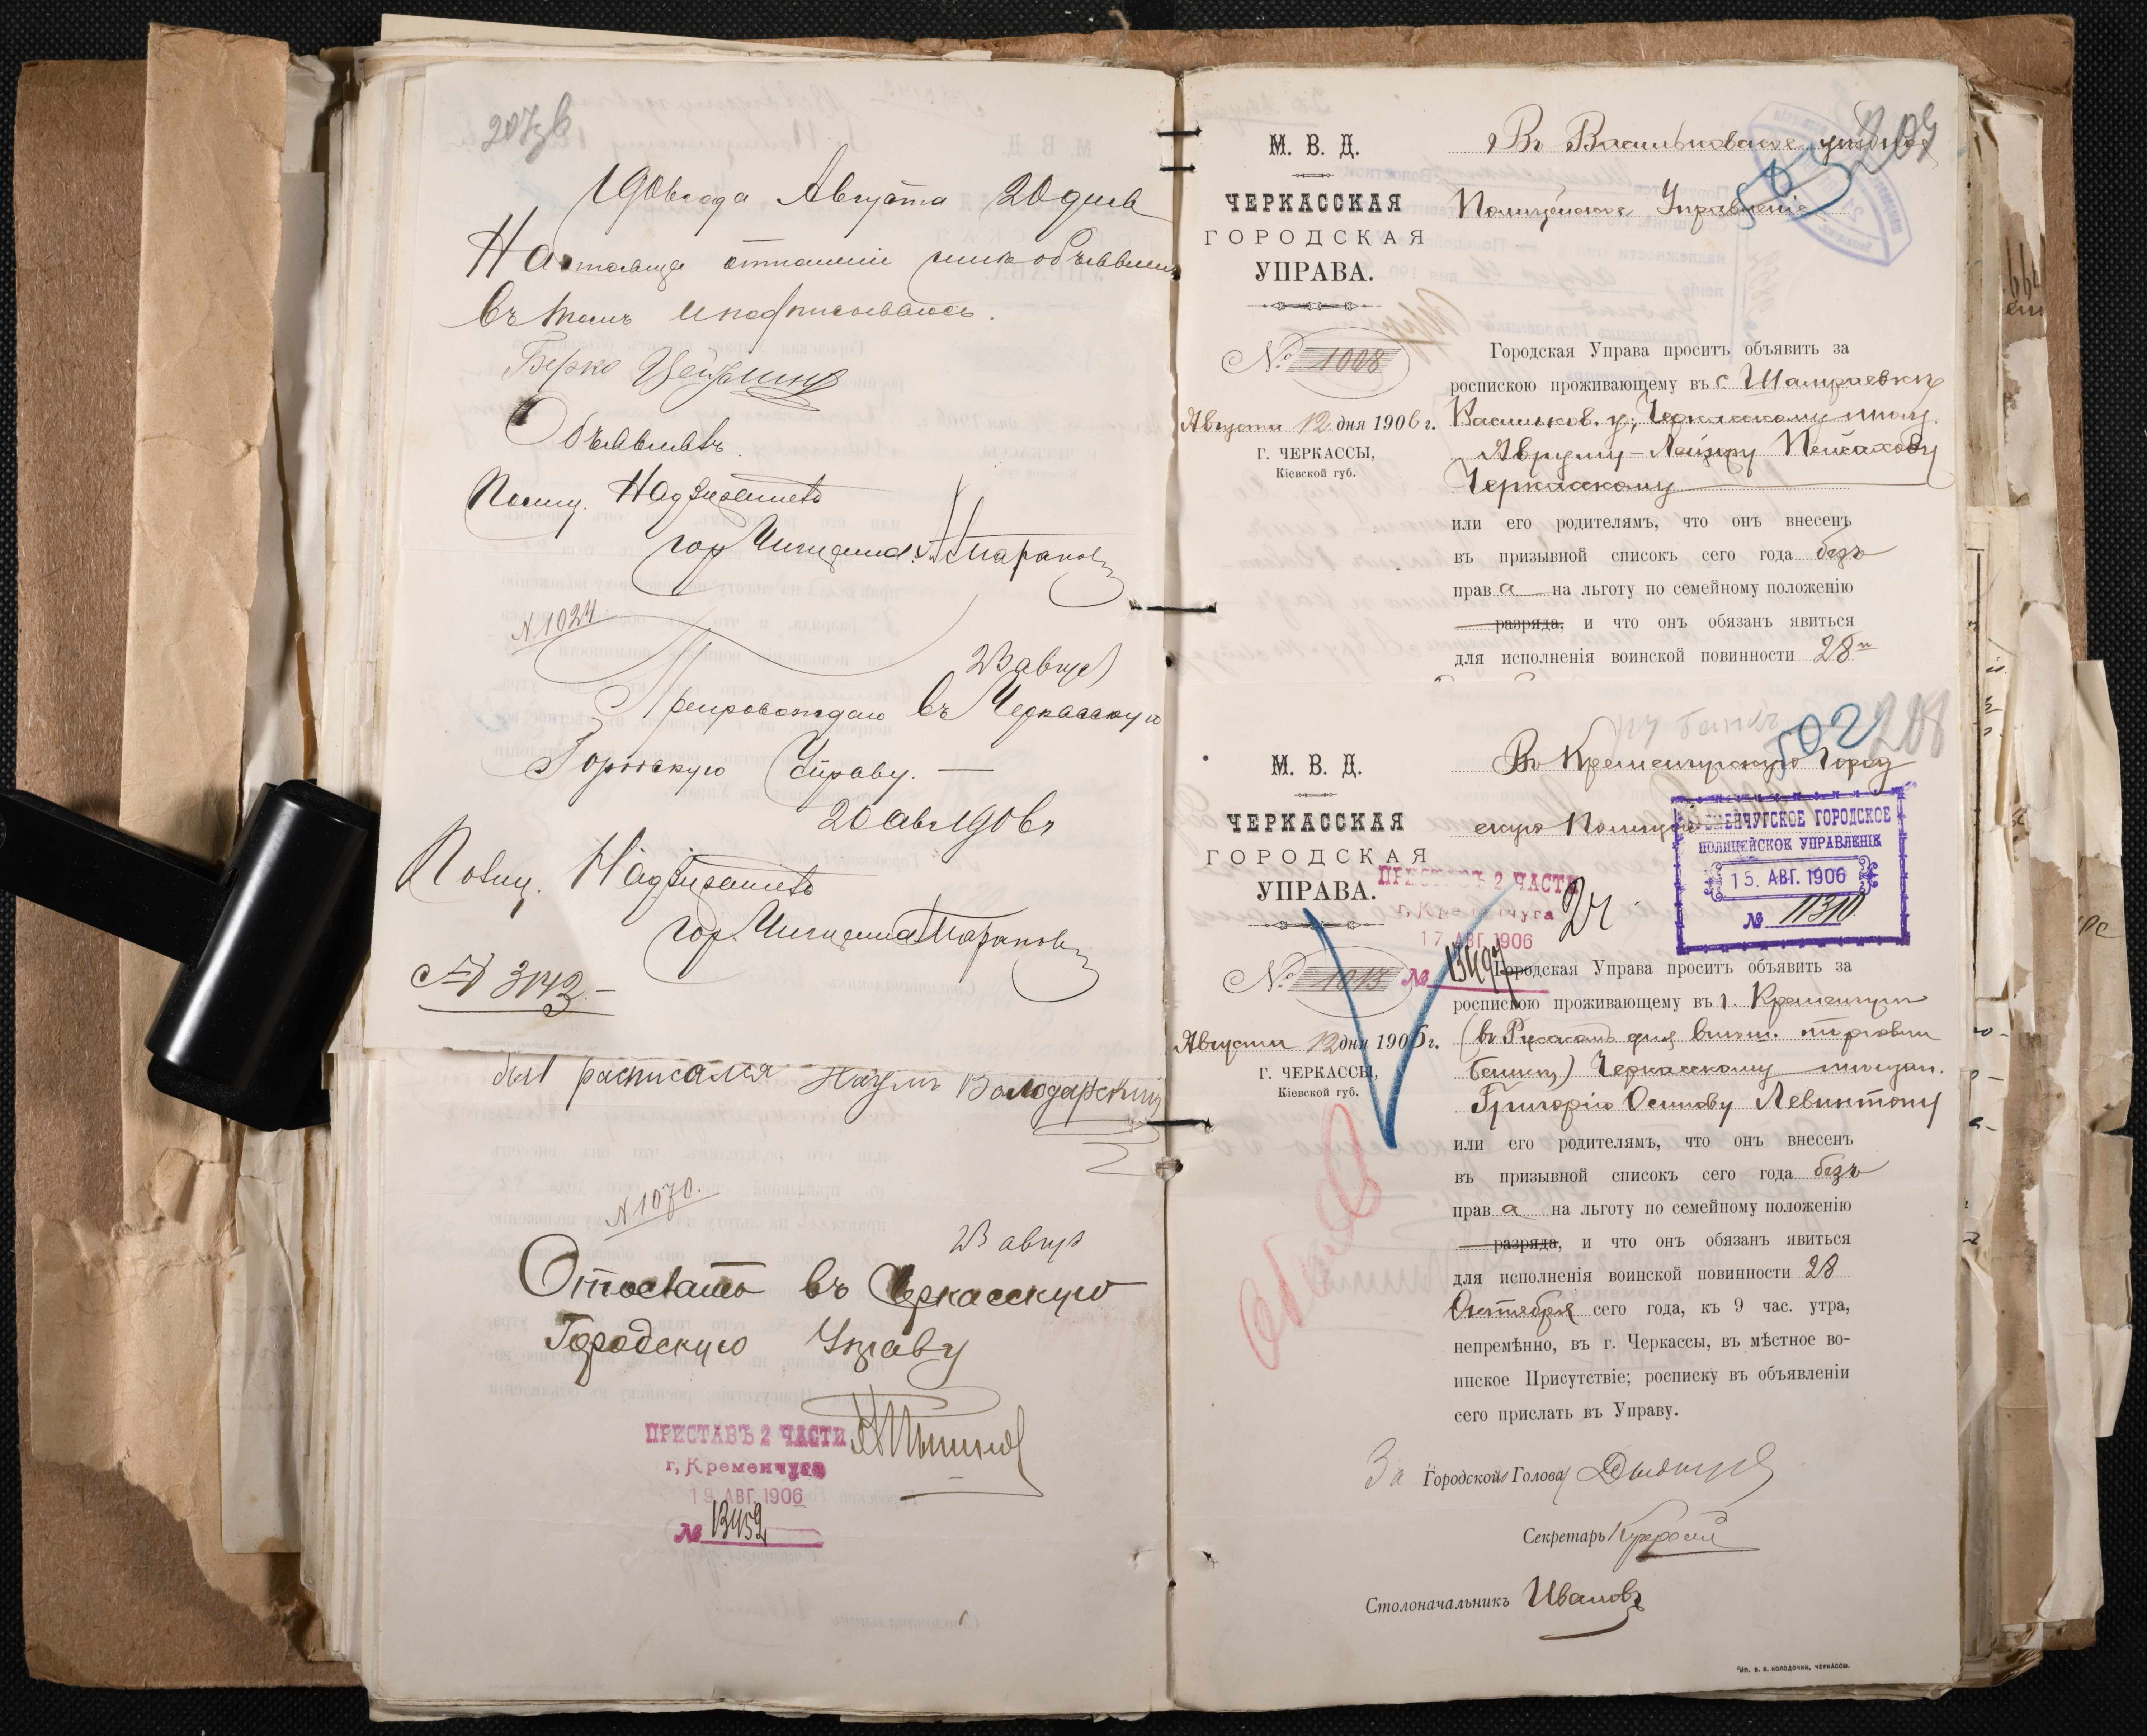 207
1906 года Августа 20 дня
въ томъ и подписываюсь.
Берко
Объявилъ.
Полиц. Надзиратель
гор. Чигирина
N 1024
23 август
Препровождаю въ Черкасскую
Городскую Управу. —
20 авг 1906 г
Полиц. Надзиратель
гор. Чигирина
№ 3142 —
был расписался Наумъ Володарский
N 1070.
23 август
Отослать въ Черкасскую
Городскую Управу
ПРИСТАВЪ 2 ЧАСТИ
г. Кременчуга
19 АВГ. 1906
№ 13452
209
503
М. В. Д.
ЧЕРКАССКАЯ
ГОРОДСКАЯ
УПРАВА.
№ 1008
Августа 12 дня 1906 г.
Г. ЧЕРКАССЫ,
Кіевской губ.
Въ Васильковское уѣздное
Полицейское Управленіе
Городская Управа проситъ объявить за
роспискою проживающему въ с.
Васильков. у., Черкасскому мѣщ.
Авруму-Лейзеру Пейсахову
Черкасскому
или его родителямъ, что онъ внесенъ
въ призывной списокъ сего года безъ
права на льготу по семейному положенію
разряда, и что онъ обязанъ явиться
для исполненія воинской повинности 28
502 208
М. В. Д.
ЧЕРКАССКАЯ
ГОРОДСКАЯ
УПРАВА.
№ 1013
Августа 12 дня 1906 г.
Г. ЧЕРКАССЫ,
Кіевской губ.
ПРИСТАВЪ 2 ЧАСТИ
г. Кременчуга
17 АВГ 1906
№ 13497
2 ч
Въ Кременчугскую Город
скую Полицію
КРЕМЕНЧУГСКОЕ ГОРОДСКОЕ
ПОЛИЦЕЙСКОЕ УПРАВЛЕНІЕ
15. АВГ. 1906
№ 11310
Городская Управа проситъ объявить за
роспискою проживающему въ г. Кременчугѣ
Черкасскому мѣщан.
Григорію Осипову Левинтону
или его родителямъ, что онъ внесенъ
въ призывной списокъ сего года безъ
права на льготу по семейному положенію
разряда, и что онъ обязанъ явиться
для исполненія воинской повинности 28
Октября сего года, къ 9 час. утра,
непремѣнно, въ г. Черкассы, въ мѣстное во-
инское Присутствіе; росписку въ объявленіи
сего прислать въ Управу.
За Городской Голова
Секретарь
Столоначальникъ Ивановъ
Тип. В. В. КОЛОДОЧКИ, ЧЕРКАССЫ.